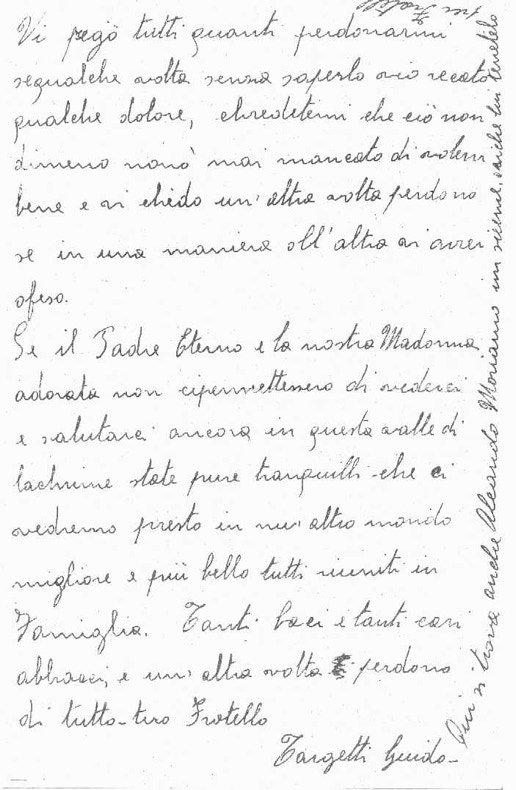 Vi pregö tutti quanti perdonarmi
sequalche volta senza saperlo vio recato
qualche dolore, chredetemi che ciò non
dimeno nonò mai mancato di volervi
bene e vi chiedo un'altra volta perdono
se in una maniera oll'altra vi avrei
ofeso.
Se il Padre Eterno e la nostra Madonna
adorata non cipermettessero di vederci
e salutarci ancora in questa valle di
lachrime state pure tranquilli che ci
vedremo presto in nu'altro mondo
migliore e più bello tutti riuniti in
Famiglia. Tanti baci e tanti cari
abbracci, e un'altra volta perdono
di tutto-tuo Fratello
Targetti Guido-
Qui si trova anche Aleando Moriamo insieme, anche lui
per Fratello